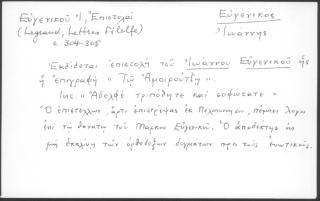 Εὐγενικοῦ Ἰ, Ἐπιστολαὶ
(Legrand, Lettres Filelfe)
σ. 304-305
Εὐγενικος
Ἰωάννης
Ἐκδίδεται ἐπιστολὴ τοῦ Ἰωάννου Εὐγενικοῦ ἧς
ἡ ἐπιγραφὴ «Τῷ Ἀμοιρούτζῃ».
Inc. «Ἀδελφὲ τριπόθητε καὶ σοφώτατε»
Ὁ ἐπιστέλλων, ἄρτι ἐπιστρέψας ἐκ Πελοποννήσου, πέμπει λόγον
ἐπὶ τῷ θανάτῳ τοῦ Μάρκου Εὐγενικοῦ. Ὁ ἀποδέκτης ὡς
μὴ ἐκκλίνῃ τῶν ὀρθοδόξων δογμάτων πρὸς τοὺς ἑνωτικούς.